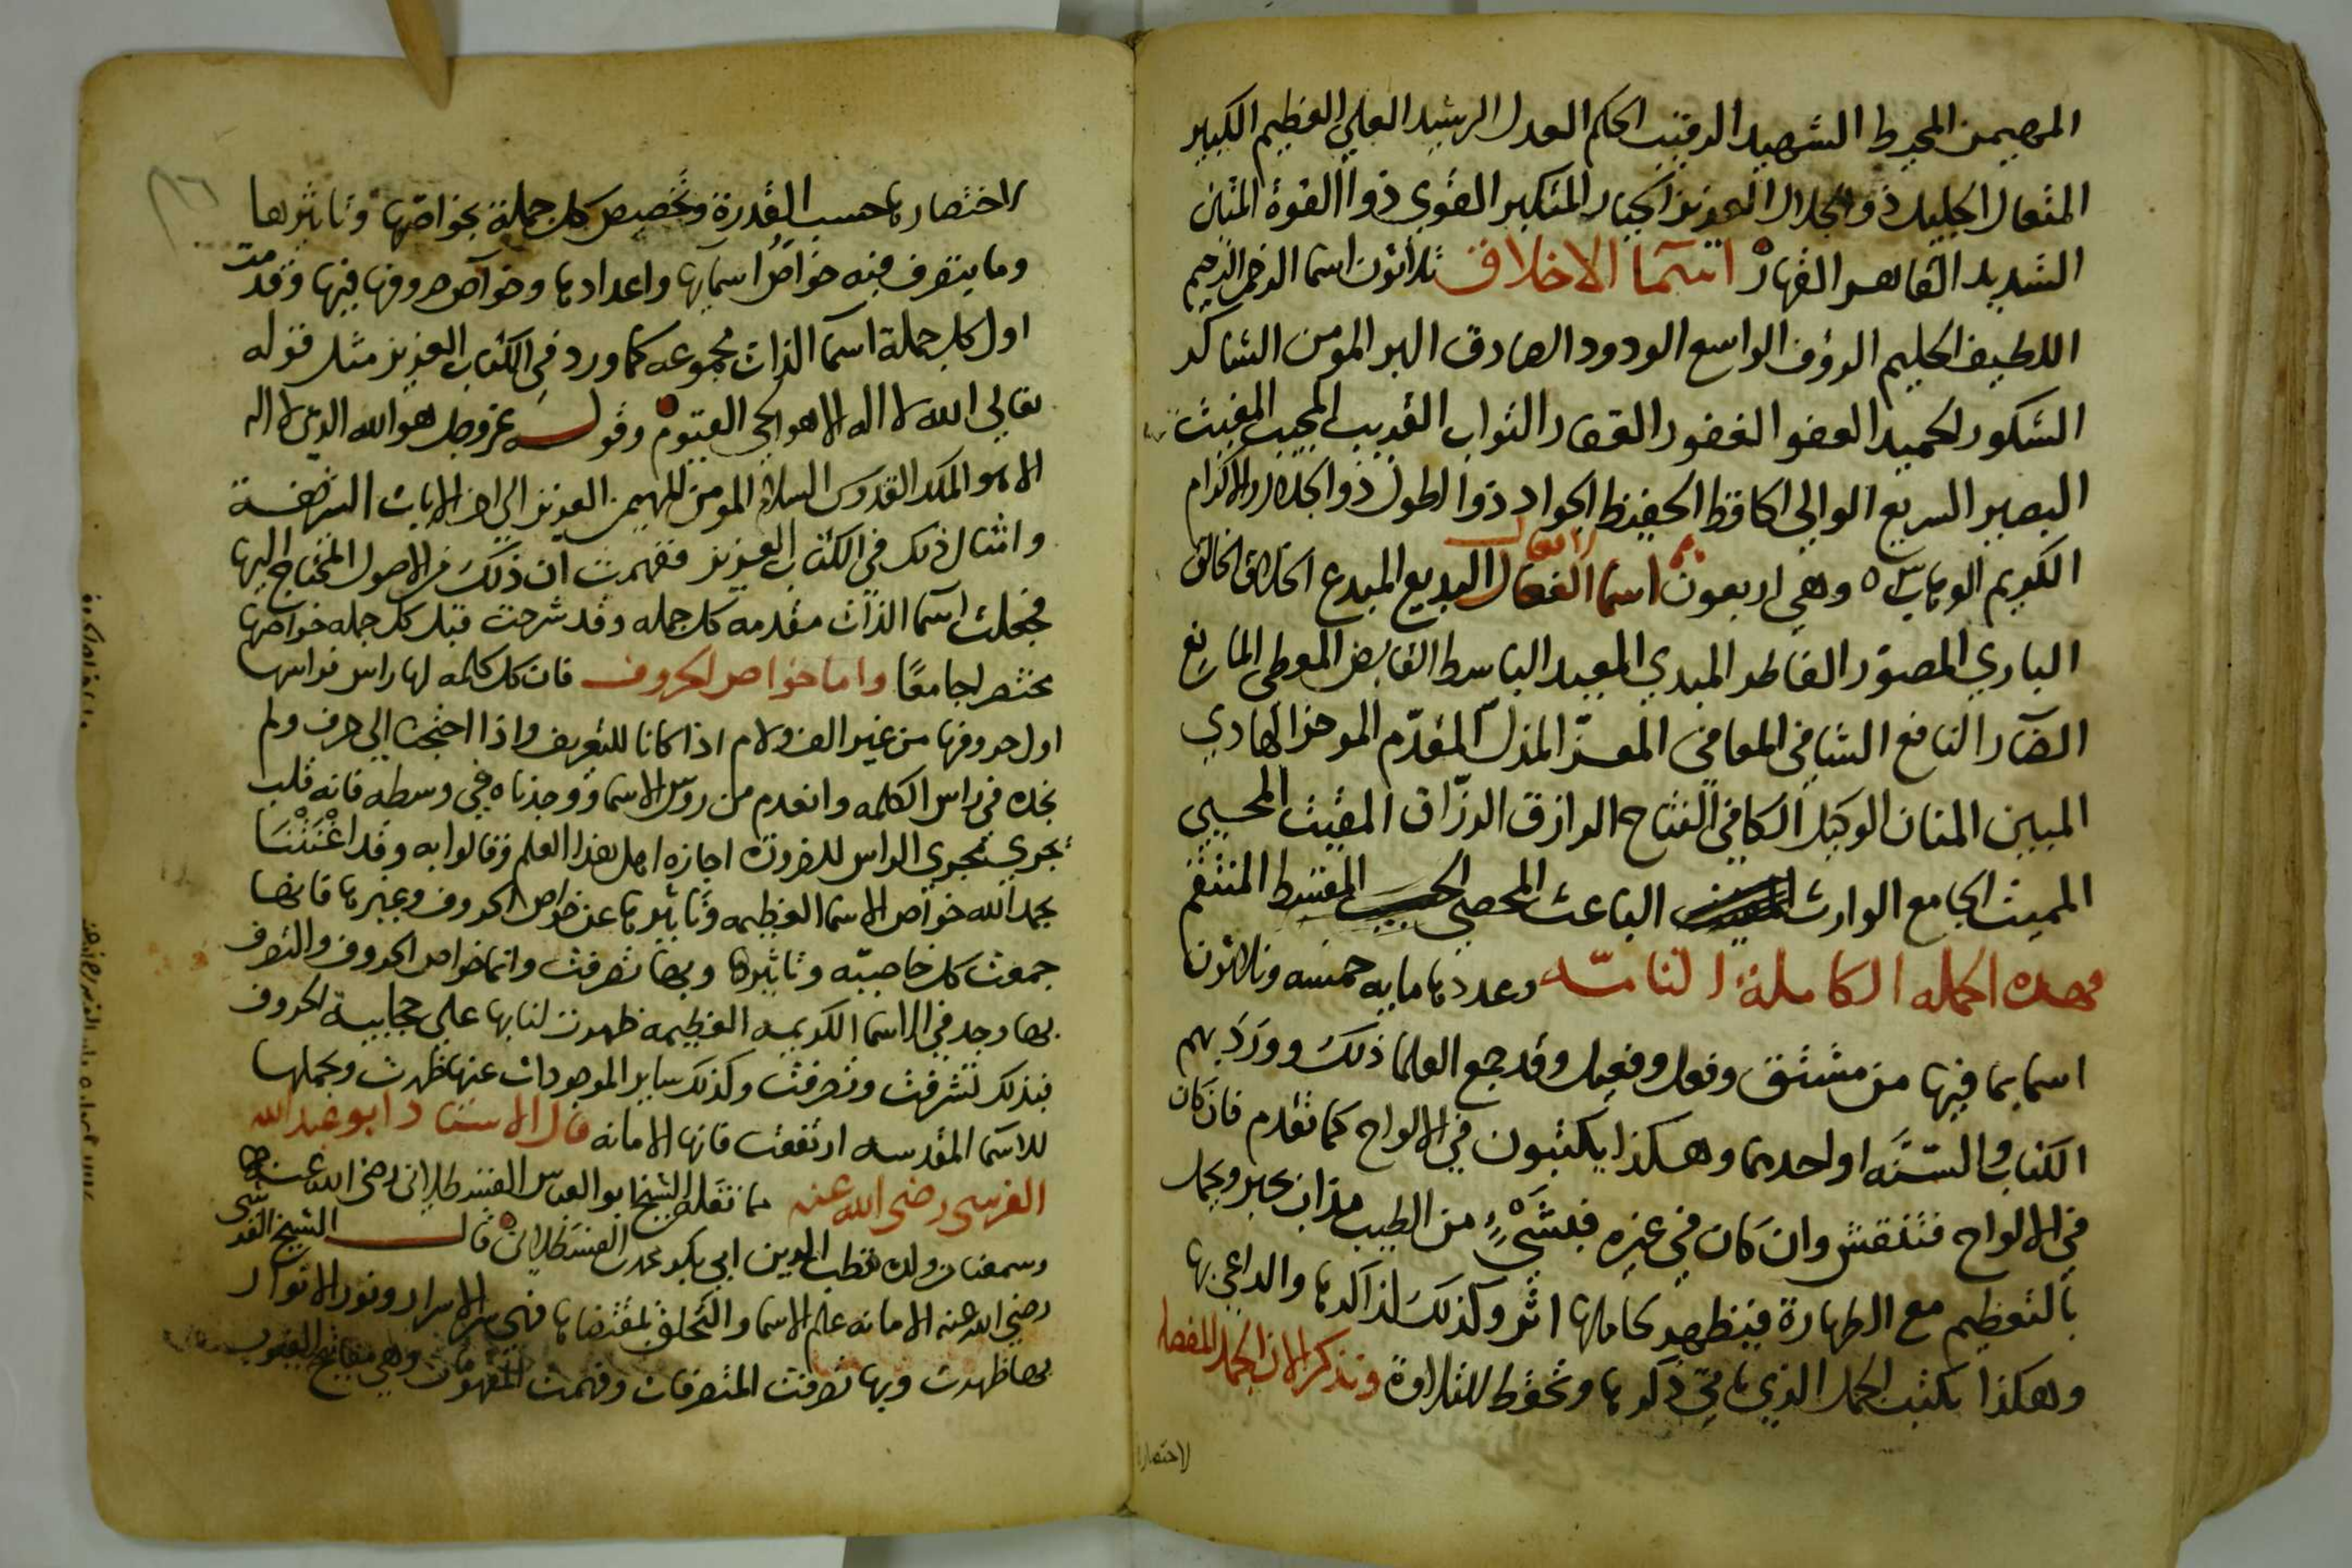 المهيمن المحيط الشهيد الرقيب الحكم العدل الرشيد العلي العظيم الكبير
المتعال الجليل ذو الجلال العزيز الجبار المتكبر القوي ذوا القوة المتين
الشديد القاهر القهار اسما الاخلاق ثلاثون اسما الرحمن الرحيم
اللطيف الحليم الرؤف الواسع الودود الصادق البر المومن الشاكر
الشكور الحميد العفو الغفور الغفار التواب القريب المجيب المغيث
البصير السريع الوالي الحافظ الحفيظ الجواد ذوا الطول ذو الجلال والاكرام
الكريم الوهاب وهي اربعون اسما الافعال البديع المبدع الخلاق الخالق
الباري المصور الفاطر المبدي المعيد الباسط القابض المعطي المانع
الضار النافع الشافي المعافي المعز المذل المقدم الموخر الهادي
المبين المنان الوكيل الكافي الفتاح الرازق الرزاق المقيت المحيي
المميت الجامع الوارث الباعث المحصي الحسيب المقسط المنتقم
فهذه الجمله الكاملة التامه وعددها مايه خمسه وثلاثون
اسما بما فيها من مشتق وفعل وفعيل وقد جمع العلما ذلك وورد بهم
الكتاب والسنه او احدهما وهكذا يكتبون في الالواح كما تقدم فان كان
في الالواح فتنقش وان كان في غيره فبشيء من الطيب مذاب بحبر ويجل
بالتعظيم مع الطهارة فيظهر لحاملها اثر وكذلك لذاكرها والداعي بها
وهكذا يكتب الجمل الذي ياتي ذكرها وتحفظ للتلاوة ونذكر الان الجمل المفصله
لاختصار
الاختصارها حسب القدرة وتخصيص كل جملة بخواصها وتاثيرها
وما يتصرف فيه خواص اسمايها واعدادها وخواص حروفها فيها وقدمت
اول كل جملة اسما الذات مجموعه كما ورد في الكتاب العزيز مثل قوله
تعالي الله لا اله الا هو الحي القيوم وقوله عز وجل هو الله الذي لا اله
الا هو الملك القدوس السلام المومن المهيمن العزيز الي اخر الايات الشريفة
وامثال ذلك في الكتاب العزيز ففهمت ان ذلك من الاصول المحتاج اليها
فجعلت اسما الذات مقدمه كل جمله وقد شرحت قبل كل جمله خواصها
مختصرا جامعا واما خواص الحروف فان كل كلمه لها راس فراسها
اول حروفها من غير الف ولام اذا كانا للتعريف واذا احتجت الي حرف ولم
تجده في راس الكلمه وانعدم من روس الاسما ووجدناه في وسطه فانه قلب
يجري مجري الراس للضرورة اجازه اهل هذا العلم وقالوا به وقد اغنتنا
بحمد الله خواص الاسما العظيمه وتاثيرها عن خواص الحروف وغيرها فانها
جمعت كل خاصيه وتاثيرها وبها تصرفت وانما خواص الحروف والتصرف
بها وجد في الاسما الكريمه العظيمه ظهرت لنا بها علي عجايبة الحروف
فبذلك تشرفت وتصرفت وكذلك ساير الموجودات عنها ظهرت وبجملها
للاسما المقدسه ارتفعت فانها الامانه قال الاستاد ابو عبد الله
القرشي رضي الله عنه مما نقله الشيخ ابو العباس القسطلاني رضي الله عنهما
وسمعنا من ولده قطب الدين ابي بكر محمد القسطلاني قال الشيخ القرشي
رضي الله عنه الامانه علم الاسما والتخلق بمقتضاها فهي سر الاسرار ونور الانوار
بها ظهرت وبها تصرفت المتصرفات وفهمت المفهومات وهي مفاتيح الغيوب